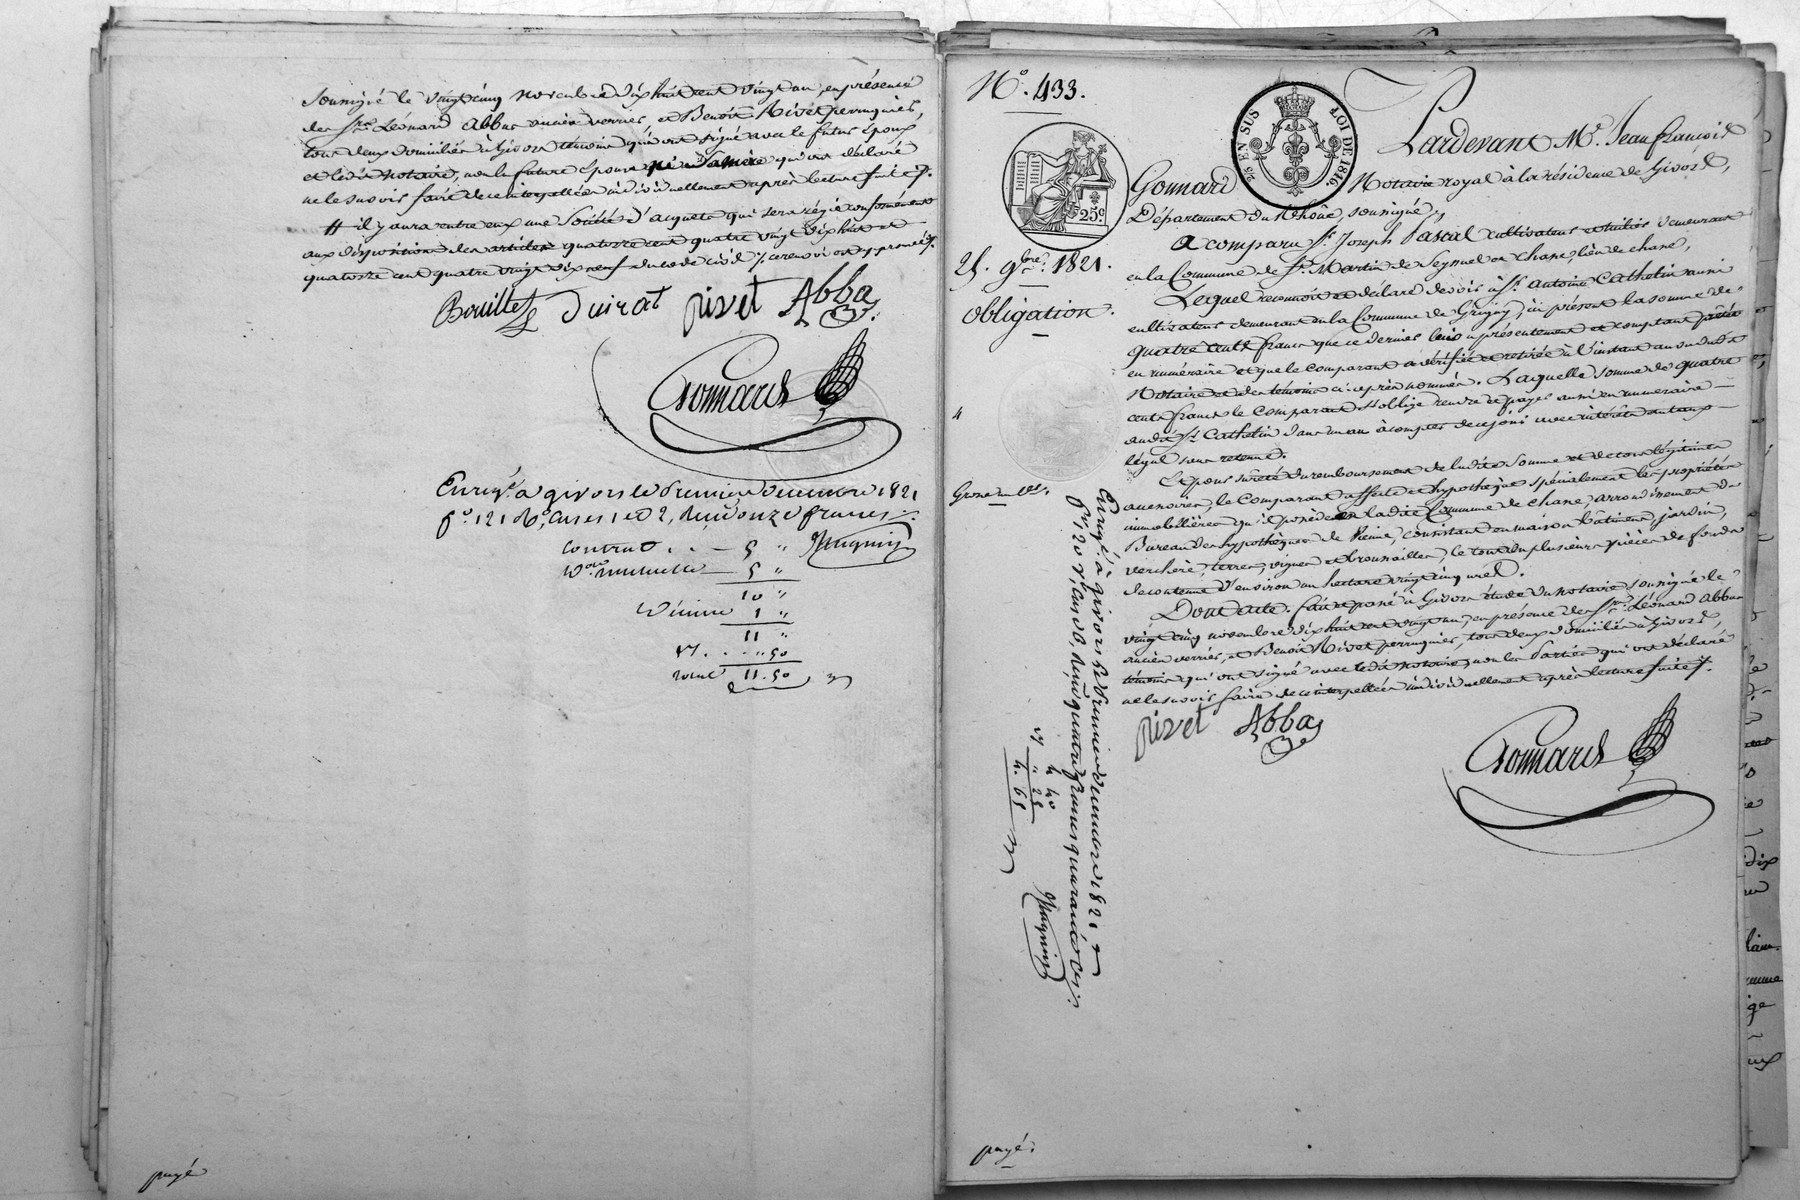 Soussigné le vingt cinq novembre dix huit cent vingt un, en présence
des Srs. Léonard Abbas ancien verrier, et Benoît Rivet perruquier,
tous deux domiciliés à Givors témoins qui ont signé avec le futur époux
et ledit Notaire, non la future épouse ni sa mère qui ont déclaré
ne le savoir faire de ce interpellées individuellement après lecture faite.
# il y aura entre eux une Société d'acquets qui sera régie conformément
aux dispositions des articles quatorze cent quatre vingt dix huit et
quatorze cent quatre vingt dix neuf du code civil ce renvoi est approuvé.
Bouillet Duirat rivet Abbas
Gonnard
Enregé. à givors le premier décembre 1821
fo. 121 Ro, Cases 1 et 2, Reçu onze francs
Contrat . . — 5 "
Don mutuelle — 5 "
10 "
Décime 1 "
11 "
. . " 50
total 11. 50
payé
No. 433.
25. 9bre. 1821.
Obligation.
4
Grosse
2/5 EN SUS
LOI DE 1816.
25c
Pardevant Me. Jean françois
Gonnard Notaire royal à la résidence de Givors,
Département du Rhône, soussigné,
a comparu Sr. Joseph Pascal cultivateur demeurant
en la Commune de St. Martin de Seyssuel et Chane, lieu de chane,
Lequel reconnoit et déclare devoir à Sr. Antoine Cathelin aussi
cultivateur demeurant en la Commune de Grigny, ici présent la somme de
quatre cents francs que ce dernier lui a présentement et comptant prêtée
en numéraire et que le comparant a vérifiée et retirée à l'instant au vu dudit
Notaire et des témoins ci-après nommés. Laquelle somme de quatre
cents francs le Comparant s'oblige rendre et payer aussi en numéraire
audit Sr. Cathelin dans un an à compter de ce jour avec intérêts au taux
légal sans retenue.
Et pour sûreté du remboursement de ladite somme et de tous légitimes
accessoires, le Comparant affecte et hypothèque spécialement les propriétés
immobilières qu'il possède en ladite Commune de chane, arrondissement du
Bureau des hypothèques de Vienne, consistant en maison bâtiment, jardin,
verchère, terres, vignes et brousailles, le tout en plusieurs pièces de fonds
de contenue d'environ un hectare vingt cinq ares.
Dont acte. fait et passé à Givors étude du Notaire soussigné le
vingt cinq novembre dix huit cent vingt un, en présence des Srs. Léonard Abbas
ancien verrier, et Benoît Rivet perruquier, tous deux domiciliés à Givors,
témoins qui ont signé avec ledit Notaire, non les Parties qui ont déclaré
ne le savoir faire de ce interpellées individuellement après lecture faite.
rivet Abbas
Gonnard
Enregé. à givors le premier décembre 1821
fo. 120 Vo, Case 6, Reçu quatre francs quarante Cs.
4 40
" 25
4. 65
payé.